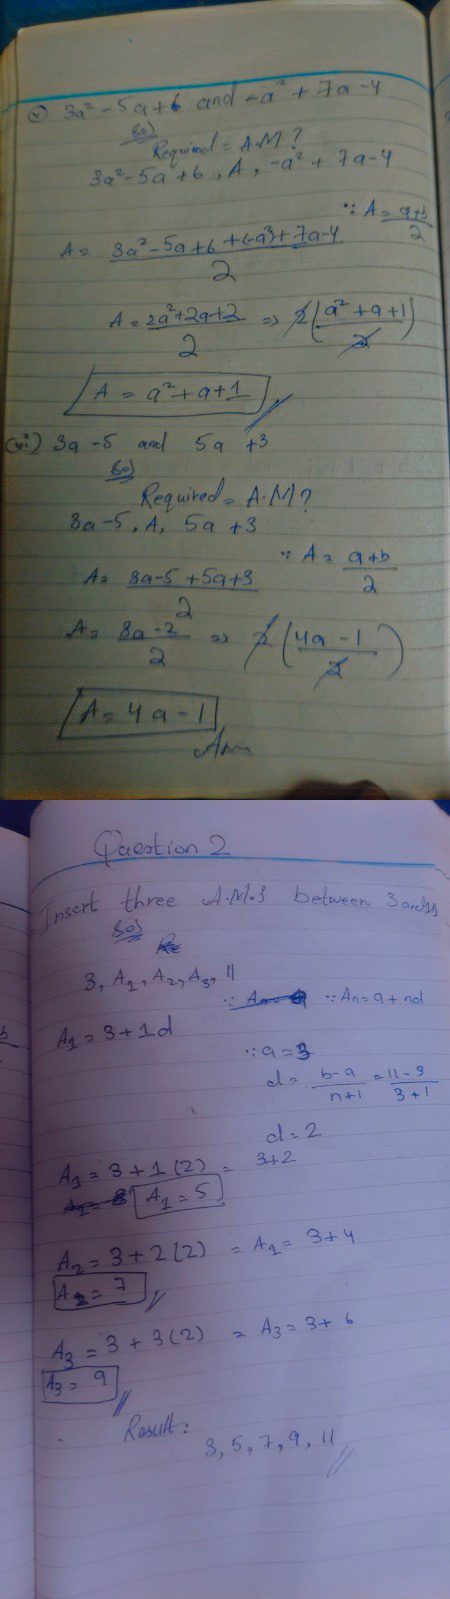 (v) 3a² - 5a + 6 and -a² + 7a - 4
Sol
Required = A.M ?
3a² - 5a + 6 , A , -a² + 7a - 4
∵ A = a+b/2
A = 3a² - 5a + 6 + (-a²) + 7a - 4 / 2
A = 2a² + 2a + 2 / 2 => 2(a² + a + 1 / 2)
A = a² + a + 1
(vi) 3a - 5 and 5a + 3
Sol
Required = A.M ?
3a - 5 , A , 5a + 3
∵ A = a+b/2
A = 3a - 5 + 5a + 3 / 2
A = 8a - 2 / 2 => 2(4a - 1 / 2)
A = 4a - 1
Ans
Question 2
Insert three A.M.s between 3 and 11
Sol
3, A₁, A₂, A₃, 11
∵ An = a + nd
A₁ = 3 + 1d
∵ a = 3
d = b-a/n+1 = 11-3/3+1
d = 2
A₁ = 3 + 1(2) = 3+2
A₁ = 5
A₂ = 3 + 2(2) = A₁ = 3+4
A₂ = 7
A₃ = 3 + 3(2) = A₃ = 3+6
A₃ = 9
Result:
3, 5, 7, 9, 11